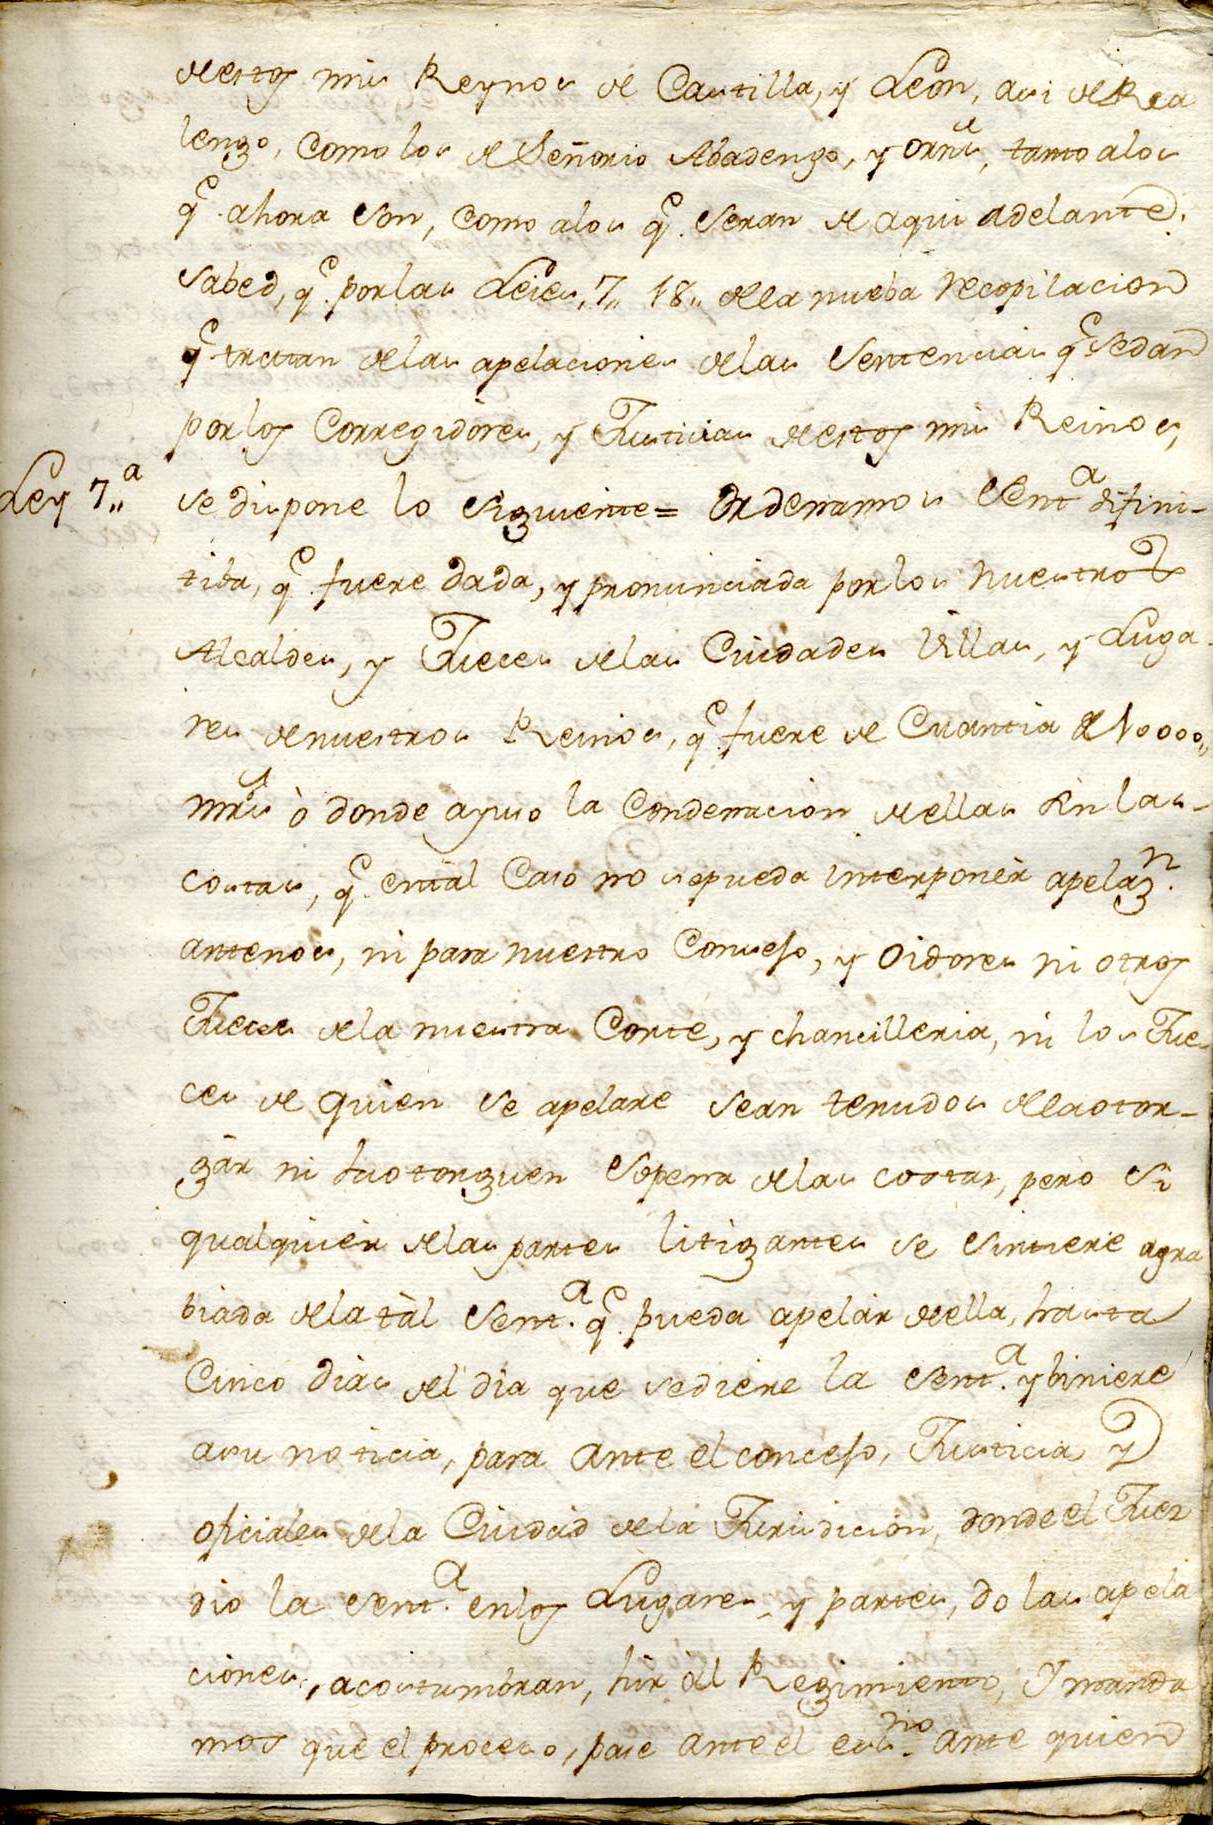 destos mis Reynos de Castilla, y Leon, asi de Rea
lengo, como los de Señorio Abadengo, y ornȩ, tanto alos
q.e ahora son, como alos q.e seran de aqui adelante.
Sabed, q.e por las Leies, 7,, 18,, dela nueba recopilacion
q.e tratan delas apelaciones delas Sentencias q.e sedan
por los Corregidores, y Justicias destos mis Reinos,
Ley 7,,a
se dispone lo siguiente = Ordenamos Senta difini-
tiba, q.e fuere dada, y pronunciada por los nuestros
Alcaldes, y Jueces delas Ciudades Villas, y Luga-
res denuestros Reinos, q.e fuere de Cuantia de 10000,,
mrs ò donde ayuso la Condenacion dellas sin las-
costas, q.e ental Caso no sepueda interponèr apelaz.n
antenos, ni para nuestro Consejo, y Oidores ni otros
Jueces dela nuestra Corte, y chancilleria, ni los Jue-
ces de quien se apelare sean tenudos dela otor-
gàr ni la otorguen sopena delas costas, pero si
qualquièr delas partes litigantes se sintiere agra
biada dela tàl Sent.a q.e pueda apelàr della, hasta
Cinco dias del dia que sediere la Sent.a y biniere
asu noticia, para ante el concejo, Justicia y
oficiales dela Ciudad dela Jurisdicion, donde el Juez
dio la Sent.a enlos Lugares, y partes, do las apela
ciones, acostumbran, hir àl Regimiento, Y manda
mos que el proceso, pase ante el ess.no ante quien